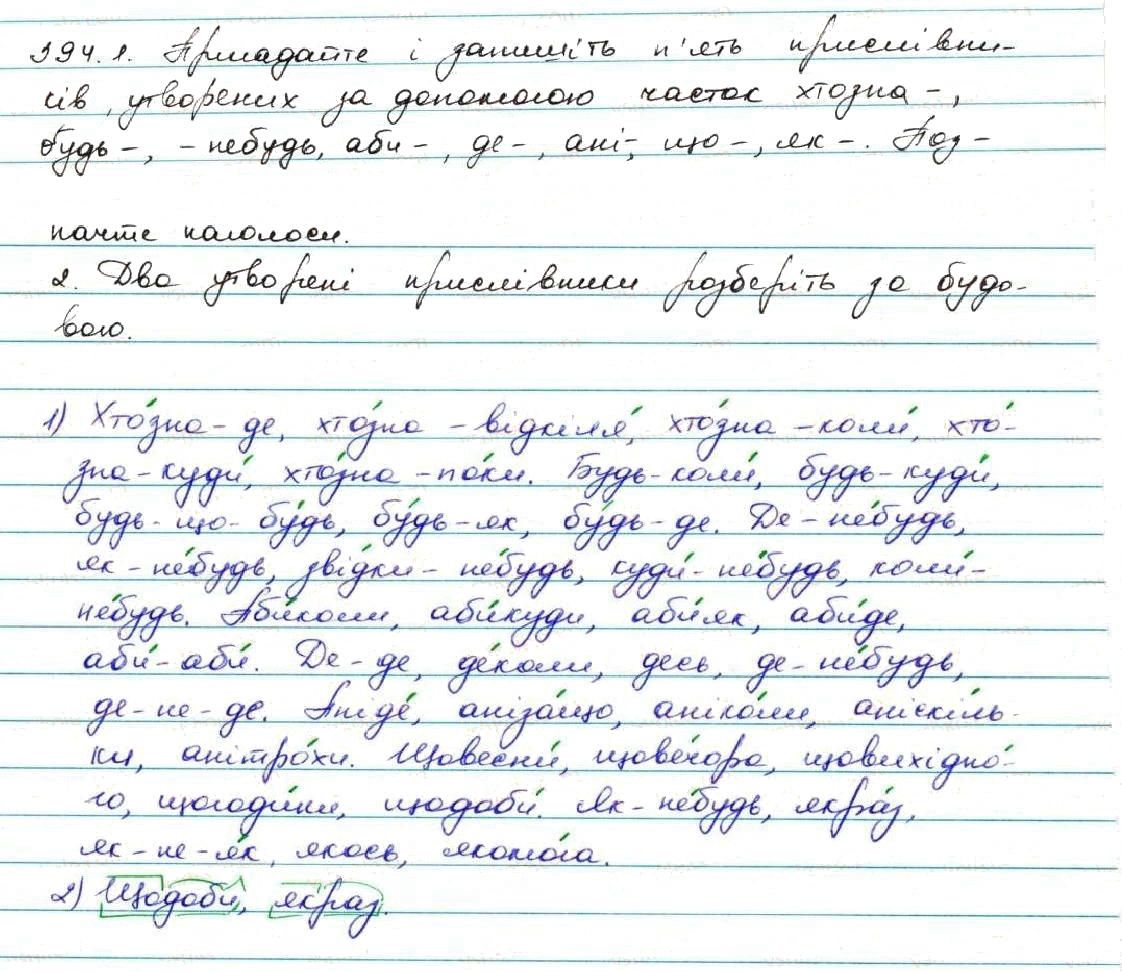 394.1. Пригадайте і запишіть п'ять прислівни-
ків, утворених за допомогою часток хтозна-,
будь-, -небудь, аби-, де-, ані-, що-, як-. Поз-
начте наголоси.
2. Два утворені прислівники розберіть за будо-
вою.
1) Хто́зна-де, хто́зна-відкіля́, хто́зна-коли́, хто́-
зна-куди́, хто́зна-по́ки. Будь-коли́, будь-куди́,
будь-що-бу́дь, бу́дь-як, бу́дь-де. Де-не́будь,
як-не́будь, зві́дки-не́будь, куди́-не́будь, коли́-
не́будь. Аби́коли, аби́куди, аби́як, аби́де,
аби́-аби́. Де-де, де́коли, десь, де-не́будь,
де-не-де. Аніде́, аніза́що, аніко́ли, аніскі́ль-
ки, анітро́хи. Щовесни́, щове́чора, щовихідно́-
го, щогоди́ни, щодоби́. Як-не́будь, якра́з,
як-не-я́к, якось, якомо́га.
2) Щодоби, якраз.